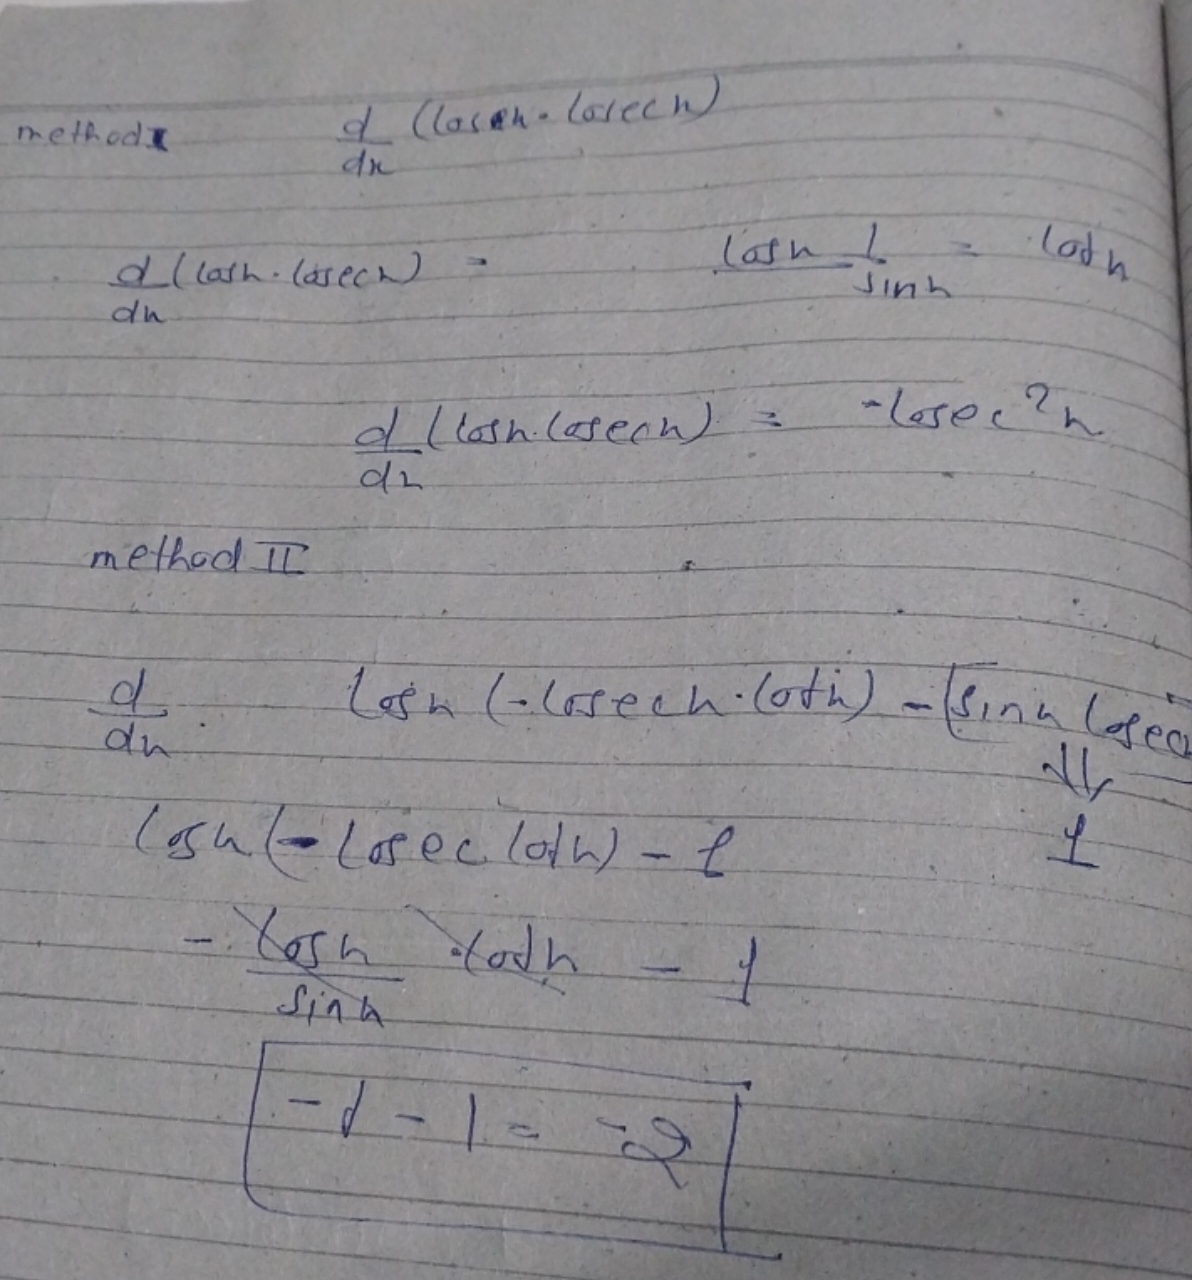 method I d/dx (cosx . cosecx)
d/dx (cosx . cosecx) = cosx 1/sinx = cotx
d/dx (cosx . cosecx) = -cosec²x
method II
d/dx . cosx (-cosecx . cotx) - (sinx cosec
⇓
cosx (-cosec cotx) - 1 1
- cosx/sinx . cotx - 1
-1 - 1 = -2